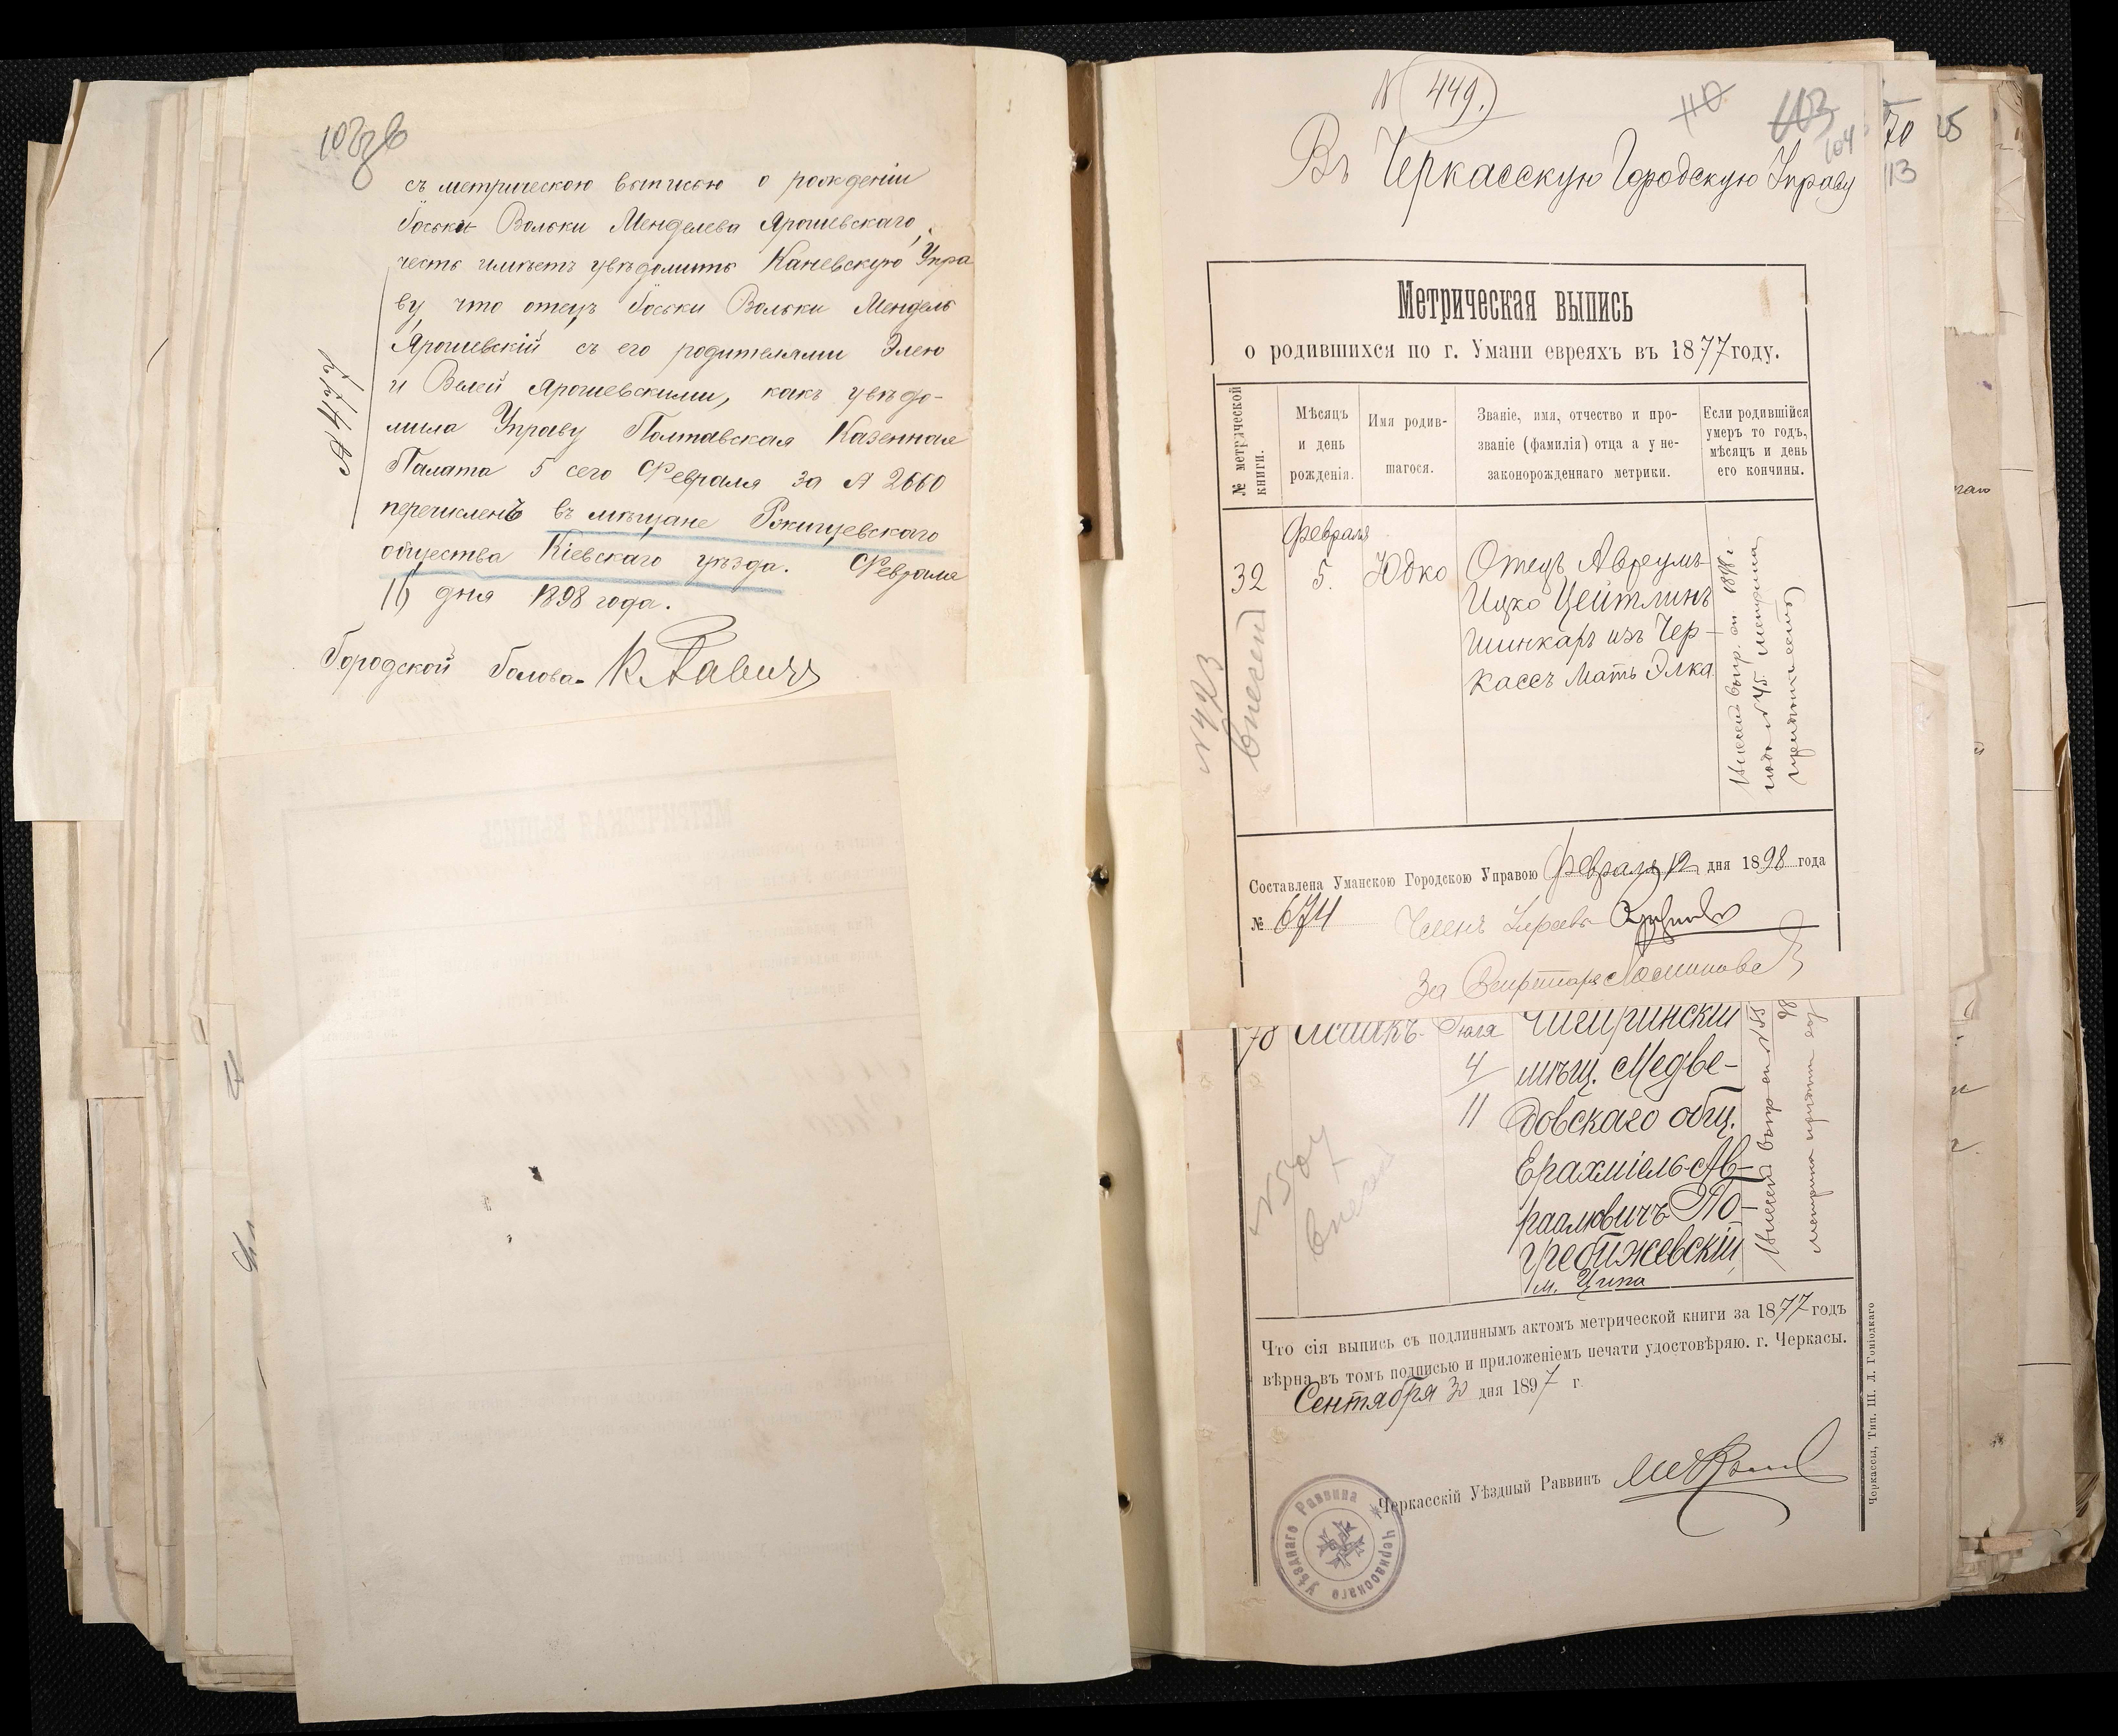 103 об
съ метрическою выписью о рожденіи
Іоськи Вольки Менделева Ярошевскаго,
честь имѣетъ увѣдомить Каневскую Упра
ву, что отецъ Іоськи Вольки Мендель
Ярошевскій съ его родителями Элею
и Велей Ярошевскими, какъ увѣдо-
мила Управу Полтавская Казенная
Палата 5 сего Февраля за № 2660
перечисленъ въ мѣщане Ржищевскаго
общества Кіевскаго уѣзда. Февраля
16 дня 1898 года.
Городской Голова
№ 449.
110
103
104
Въ Черкасскую Городскую Управу
70
113
25
Метрическая выпись
о родившихся по г. Умани евреяхъ въ 1877 году.
№ метрической книги.
Мѣсяцъ и день рожденія.
Имя родив- шагося.
Званіе, имя, отчество и про- званіе (фамилія) отца а у не- законорожденнаго метрики.
Если родившійся умеръ то годъ, мѣсяцъ и день его кончины.
Февраля
32 5. Юдко Отецъ Авреумъ
Ицко Цейтлинъ
шинкарь изъ Чер-
кассъ Мать Элка
№ 423
внесен
Составлена Уманскою Городскою Управою Февраля 12 дня 1898 года
№ 674 Членъ Управы
За Секретаря
78 Ісаакъ Іюля Чигиринскій
4 мѣщ. Медве-
11 довскаго общ.
Ерахміель Ав-
раамовичъ По-
гребижевскій
м. Ципа
№ 507
внесен
Что сія выпись съ подлиннымъ актомъ метрической книги за 1877 годъ
вѣрна въ томъ подписью и приложеніемъ печати удостовѣряю. г. Черкасы.
Сентября 30 дня 1897 г.
Черкасскій Уѣздный Раввинъ
Черкасскаго Уѣзднаго Раввина
Черкассы, Тип. Ш. Л. Гоніодкаго